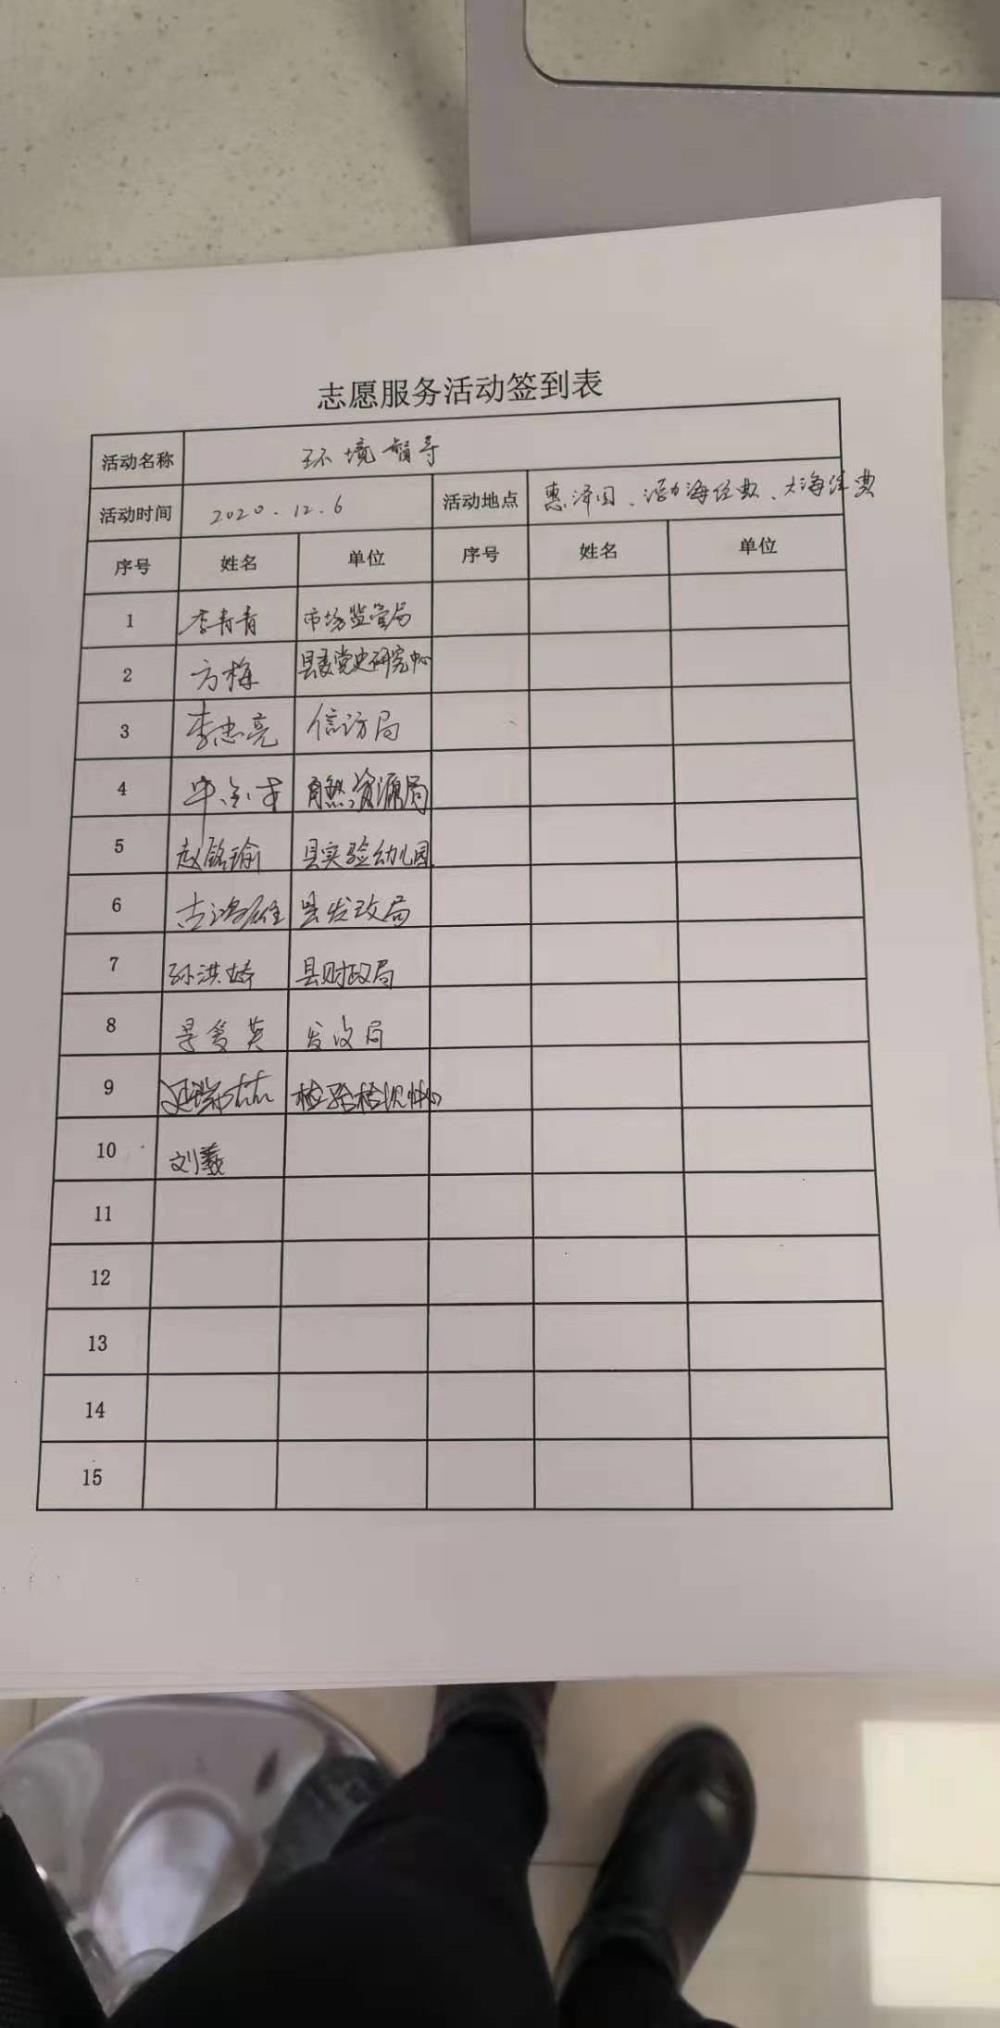 志愿服务活动签到表
活动名称 环境督导
活动时间 2020.12.6 活动地点 惠泽园、
序号 姓名 单位 序号 姓名 单位
1 李青青 市场监管局
2 方梅 县委党史研究中心
3 李忠亮 信访局
4 自然资源局
5 赵铭瑜 县实验幼儿园
6 县发改局
7 孙洪娇 县财政局
8 景爱英 发改局
9 检验检测中心
10 刘羲
11
12
13
14
15